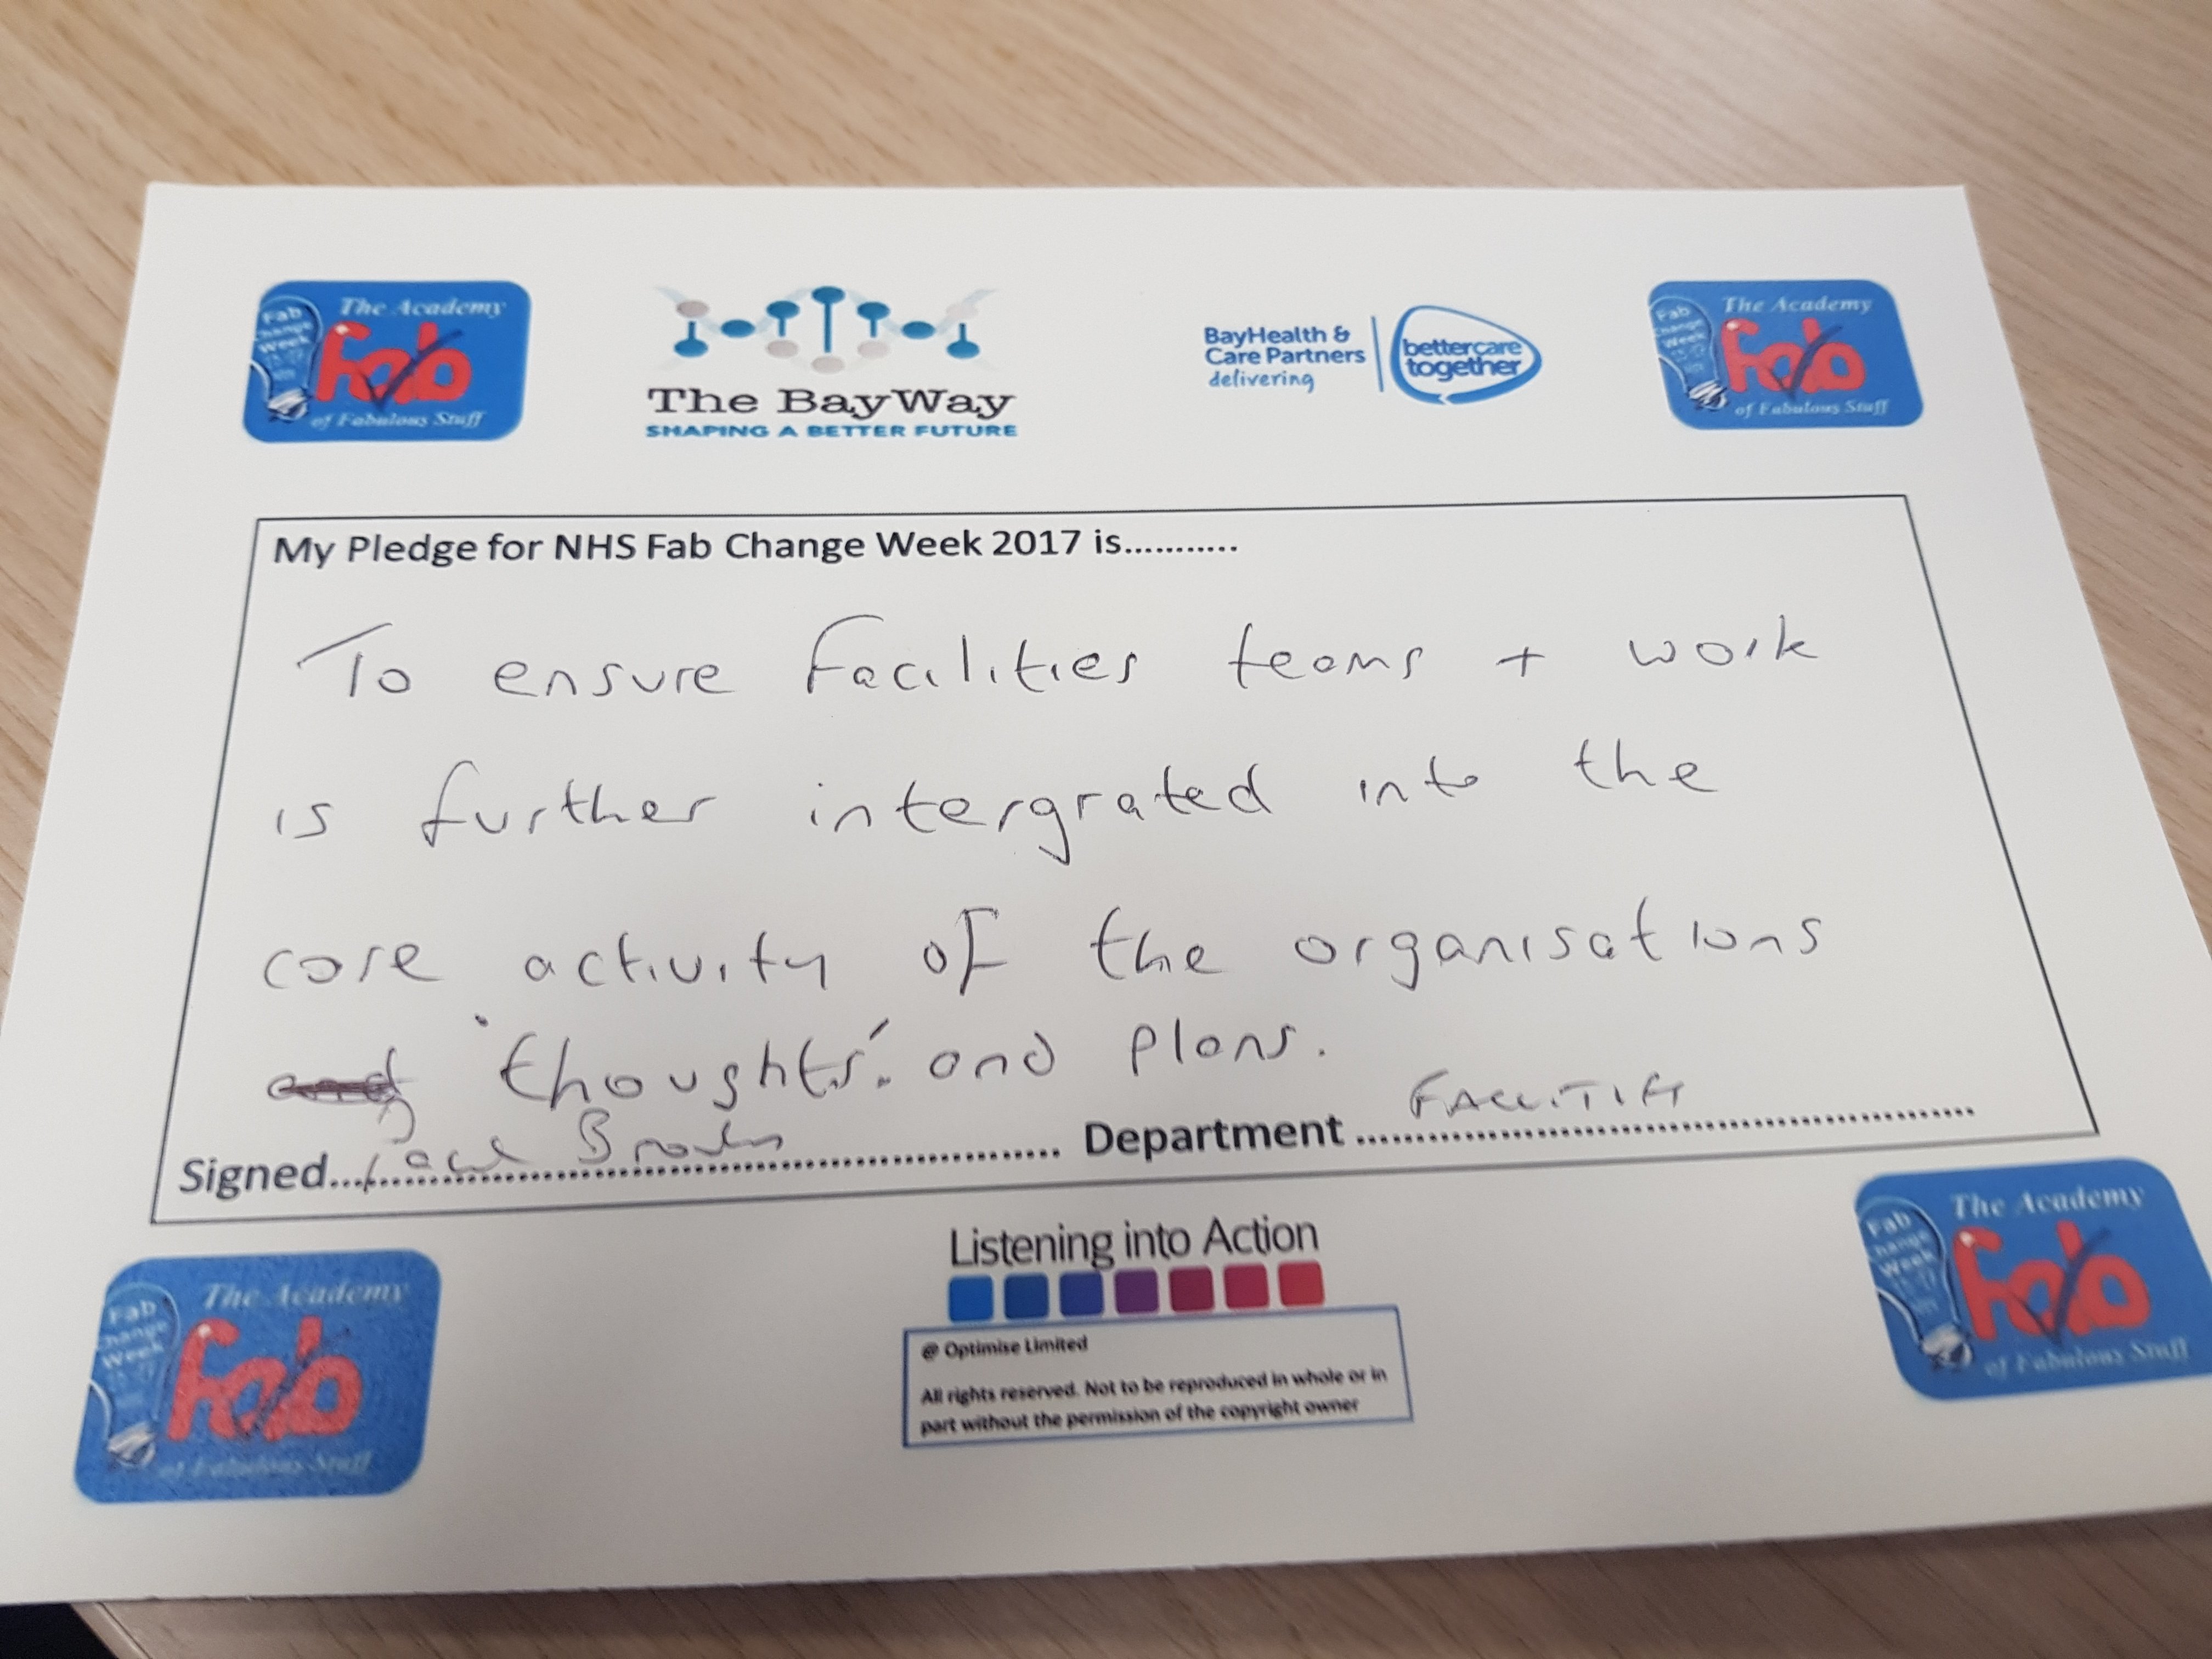 The Academy
Fab Change Week
Fab
of Fabulous Stuff
The BayWay
SHAPING A BETTER FUTURE
BayHealth &
Care Partners
delivering
bettercare
together
The Academy
Fab Change Week
Fab
of Fabulous Stuff
My Pledge for NHS Fab Change Week 2017 is...........
To ensure Facilities teams + work
is further intergrated into the
core activity of the organisations
and 'thoughts'. and plans.
Signed... Department
Listening into Action
The Academy
Fab Change Week
Fab
of Fabulous Stuff
@ Optimise Limited
All rights reserved. Not to be reproduced in whole or in
part without the permission of the copyright owner
The Academy
Fab Change Week
Fab
of Fabulous Stuff